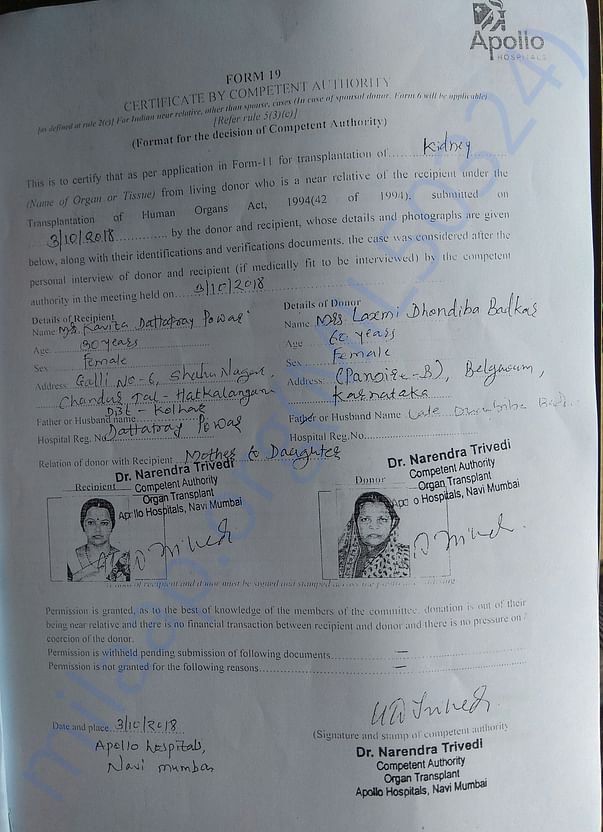 Apollo
HOSPITALS
FORM 19
CERTIFICATE BY COMPETENT AUTHORITY
[as defined at rule 2(c)] For Indian near relative, other than spouse, cases (In case of spousal donor, Form 6 will be applicable)
[Refer rule 5(3)(c)]
(Format for the decision of Competent Authority)
This is to certify that as per application in Form-11 for transplantation of Kidney
(Name of Organ or Tissue) from living donor who is a near relative of the recipient under the
Transplantation of Human Organs Act, 1994(42 of 1994), submitted on
3/10/2018 by the donor and recipient, whose details and photographs are given
below, along with their identifications and verifications documents. the case was considered after the
personal interview of donor and recipient (if medically fit to be interviewed) by the competent
authority in the meeting held on 3/10/2018
Details of Recipient
Name Mrs. Kavita Dattatray Powar
Age 30 years
Sex Female
Address Galli No-6, Shahu Nagar
Chandur Tal-Hatkalangane
Dist-Kolhar
Father or Husband name
Hospital Reg. No. Dattatray Powar
Details of Donor
Name Mrs Laxmi Dhondiba Badkar
Age 60 years
Sex Female
Address: (Pangire-B), Belgaum,
Karnataka
Father or Husband Name Late
Hospital Reg.No.
Relation of donor with Recipient Mother to Daughter
Recipient
Dr. Narendra Trivedi
Competent Authority
Organ Transplant
Apollo Hospitals, Navi Mumbai
Donor
Dr. Narendra Trivedi
Competent Authority
Organ Transplant
Apo o Hospitals, Navi Mumbai
of recipient and donor must be signed and stamped across the
Permission is granted, as to the best of knowledge of the members of the committee, donation is out of their
being near relative and there is no financial transaction between recipient and donor and there is no pressure on
coercion of the donor.
Permission is withheld pending submission of following documents
Permission is not granted for the following reasons
Date and place 3/10/2018
Apollo hospitals,
Navi mumbai
(Signature and stamp of competent authority
Dr. Narendra Trivedi
Competent Authority
Organ Transplant
Apollo Hospitals, Navi Mumbai